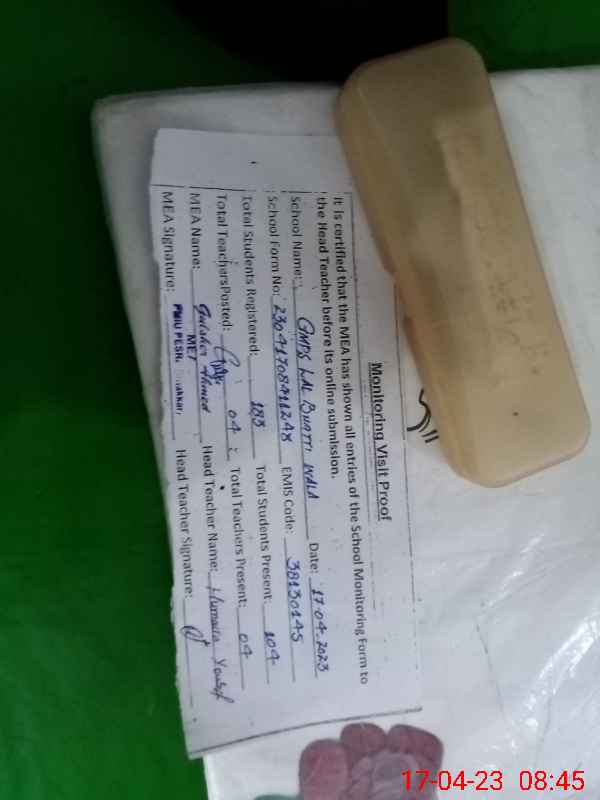 Monitoring Visit Proof
It is certified that the MEA has shown all entries of the School Monitoring Form to
the Head Teacher before its online submission.
School Name: GMPS LAL BHATTI WALA Date: 17-04-2023
School Form No: 23041708411248 EMIS Code: 38130145
Total Students Registered: 183 Total Students Present: 104
Total TeachersPosted: 04 Total Teachers Present: 04
MEA Name: Gulsher Ahmed Head Teacher Name: Humaira Yousaf
MEA Signature: Head Teacher Signature:
MET
PMIU PESR,
17-04-23 08:45